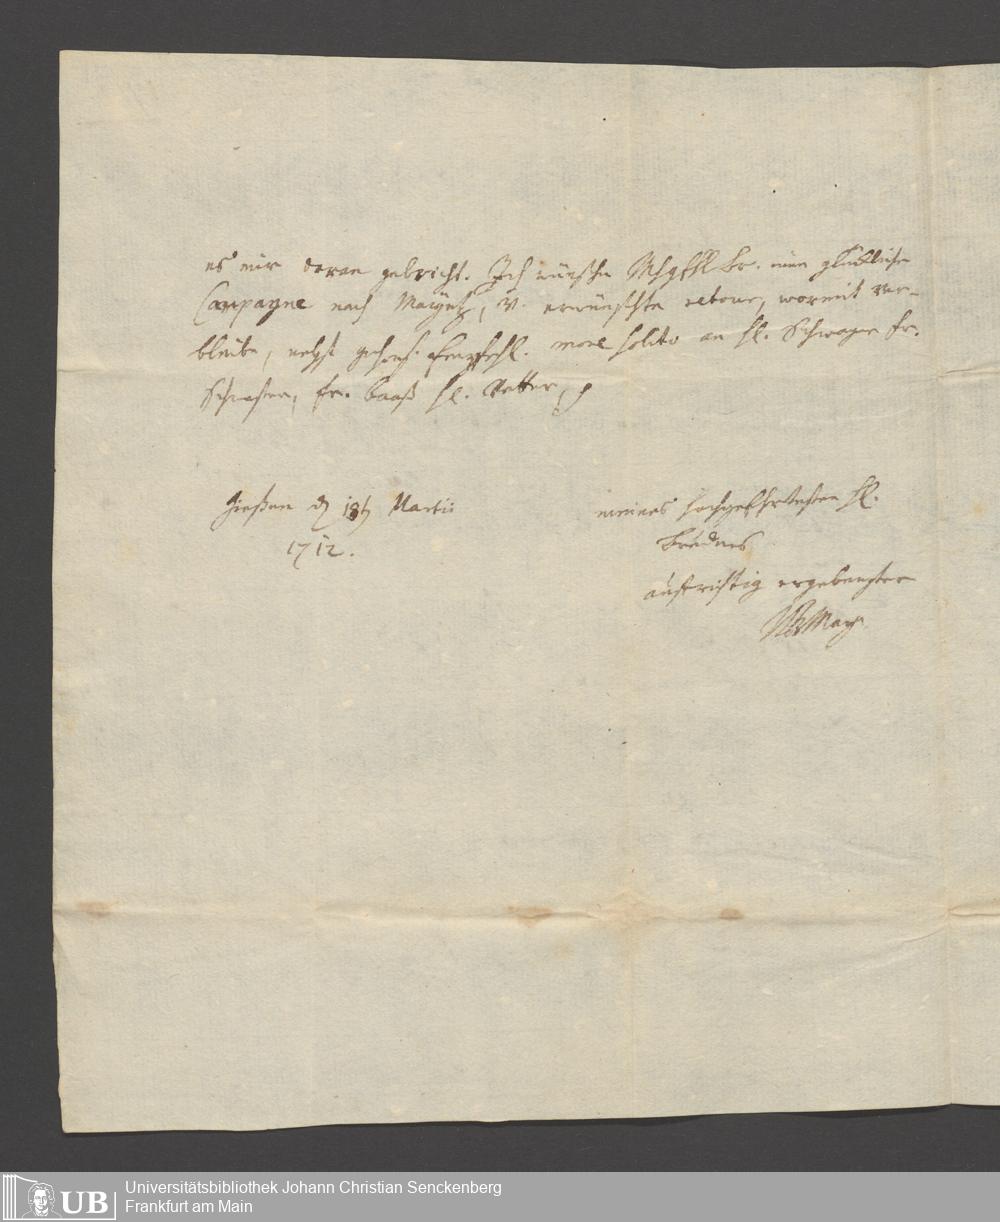 es mir daran gebricht. Ich wünsche MhgH Br. eine glückliche
Campagne nach Mayntz, v. erwünschte retour, wormit ver-
bleibe, nebst gehors. Empfehl. more solito an H. Schwager Fr.
Schwester, Fr. Baaß H. Vetter,
Gießen d 18 Martii
1712.
meines hochgeehrtesten H.
Bruders
aufrichtig ergebenster
May
UB
Universitätsbibliothek Johann Christian Senckenberg
Frankfurt am Main